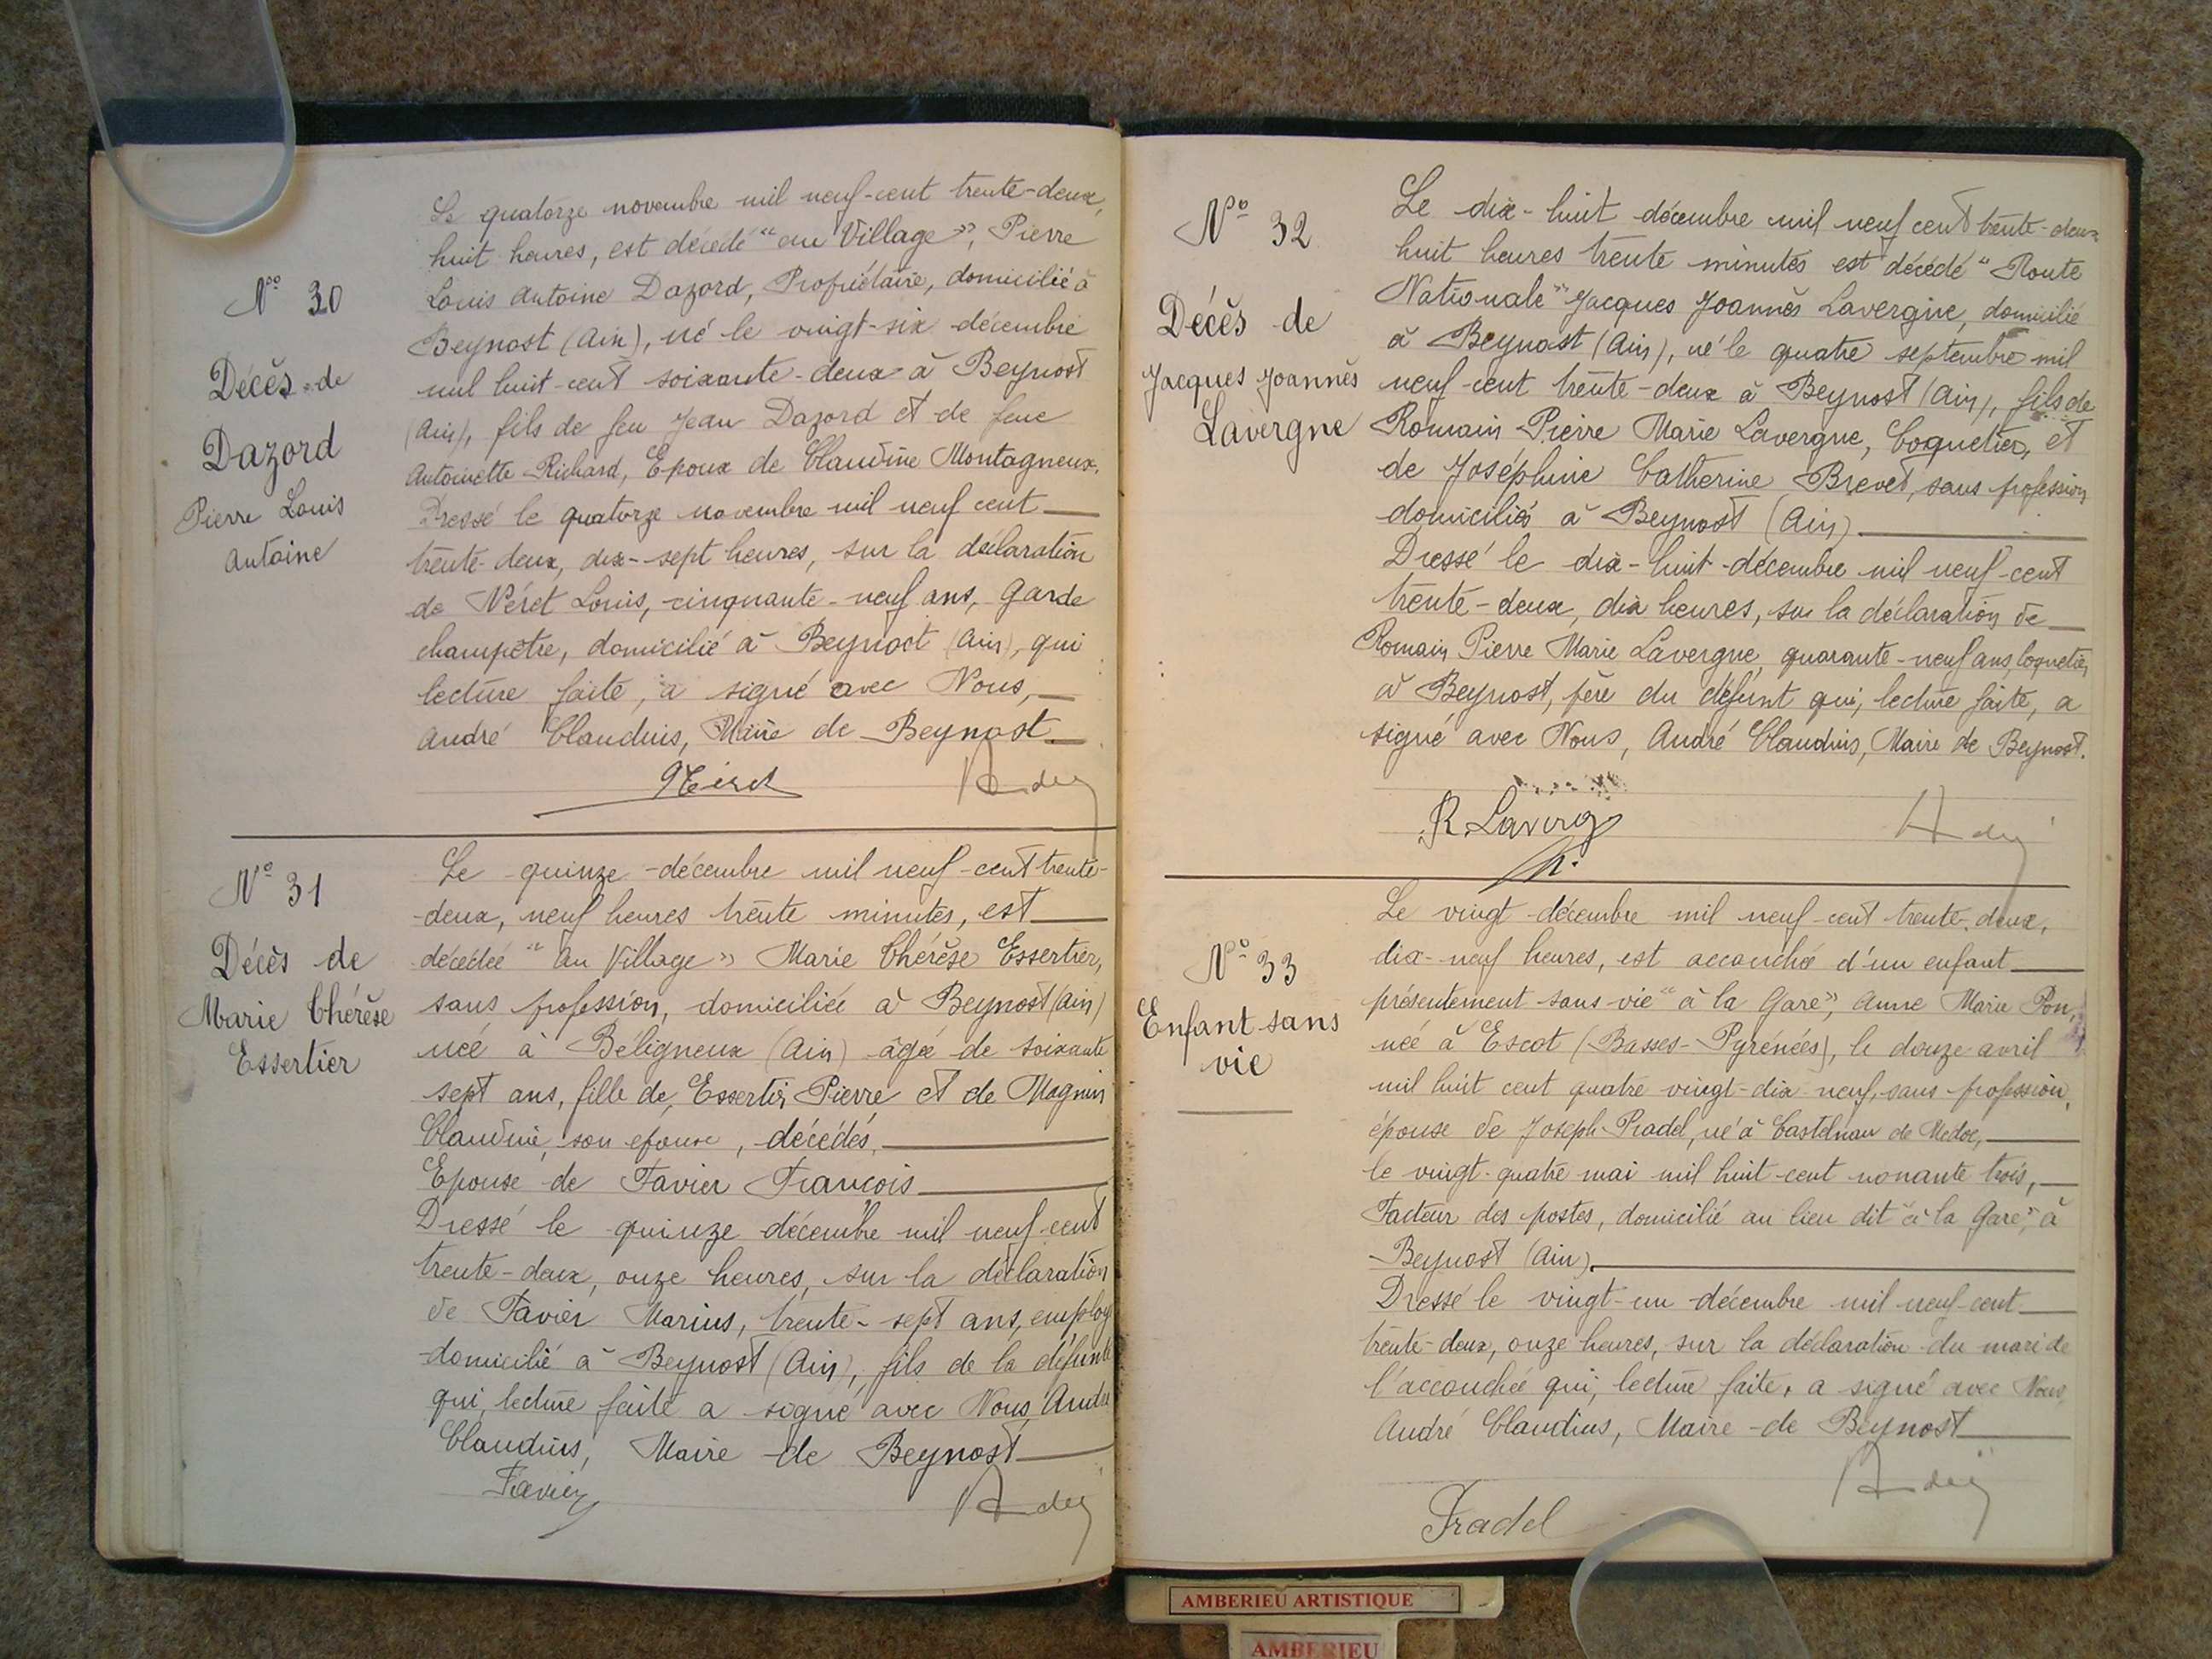 N° 30
Décès de
Dazord
Pierre Louis
Antoine
Le quatorze novembre mil neuf-cent trente-deux,
huit heures, est décédé "au Village", Pierre
Louis Antoine Dazord, Propriétaire, domicilié à
Beynost (Ain), né le vingt-six décembre
mil huit-cent soixante-deux à Beynost
(Ain), fils de feu Jean Dazord et de feue
Antoinette Richard, Epoux de Claudine Montagneux.
Dressé le quatorze novembre mil neuf cent
trente-deux, dix-sept heures, sur la déclaration
de Néret Louis, cinquante-neuf ans, Garde
champêtre, domicilié à Beynost (Ain), qui
lecture faite, a signé avec Nous,
André Claudius, Maire de Beynost.
Néret André
N° 31
Décès de
Marie Thérèse
Essertier
Le quinze décembre mil neuf-cent trente-
deux, neuf heures trente minutes, est
décédée "au Village" Marie Thérèse Essertier,
sans profession, domiciliée à Beynost (Ain)
née à Béligneux (Ain) âgée de soixante
sept ans, fille de, Essertier Pierre et de Magnin
Claudine, son épouse, décédés.
Epouse de Favier François
Dressé le quinze décembre mil neuf-cent
trente-deux, onze heures, sur la déclaration
de Favier Marius, trente-sept ans, employ
domicilié à Beynost (Ain), fils de la défunte
qui, lecture faite a signé avec Nous, André
Claudius, Maire de Beynost
Favier André
N° 32
Décès de
Jacques Joannès
Lavergne
Le dix-huit décembre mil neuf cent trente-deux
huit heures trente minutes est décédé "Route
Nationale" Jacques Joannès Lavergne, domicilié
à Beynost (Ain), né le quatre septembre mil
neuf-cent trente-deux à Beynost (Ain), fils de
Romain Pierre Marie Lavergne, Coquetier, et
de Joséphine Catherine Brevet, sans profession
domiciliés à Beynost (Ain)
Dressé le dix-huit décembre mil neuf-cent
trente-deux, dix heures, sur la déclaration de
Romain Pierre Marie Lavergne, quarante-neuf ans, Coquetier
à Beynost, père du défunt qui, lecture faite, a
signé avec Nous, André Claudius, Maire de Beynost.
R. Laverg André
N° 33
Enfant sans
vie
Le vingt décembre mil neuf-cent trente-deux,
dix-neuf heures, est accouchée d'un enfant
présentement sans vie "à la Gare", Anne Marie Pon,
née à Escot (Basses-Pyrénées), le douze avril
mil huit cent quatre vingt-dix neuf, sans profession,
épouse de Joseph Pradel, né à Castelnau de Médoc,
le vingt-quatre mai mil huit-cent nonante trois,
Facteur des postes, domicilié au lieu dit "à la Gare", à
Beynost (Ain).
Dressé le vingt-un décembre mil neuf-cent
trente-deux, onze heures, sur la déclaration du mari de
l'accouchée qui, lecture faite, a signé avec Nous,
André Claudius, Maire de Beynost
André
Pradel
AMBERIEU ARTISTIQUE
AMBERIEU